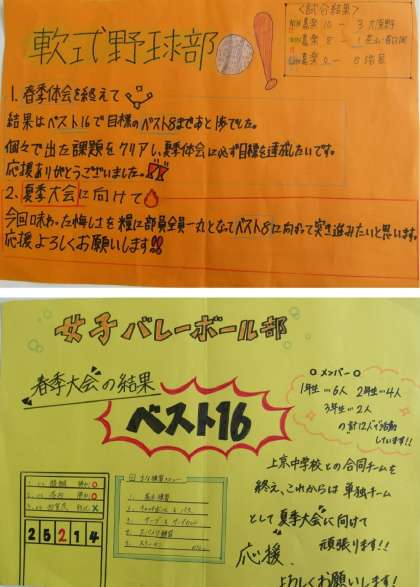 軟式野球部
〈試合結果〉
嘉楽 10 - 3 大原野
嘉楽 8 - 1
嘉楽
1. 春季体会を終えて
結果はベスト16で目標のベスト8まであと1歩でした。
個々で出た課題をクリアし、夏季体会に必ず目標を達成したいです。
応援ありがとうございました。
2. 夏季大会に向けて
今回味わった悔しさを糧に部員全員一丸となってベスト8に向かって突き進みたいと思います。
応援よろしくお願いします!!
女子バレーボール部
春季大会の結果
ベスト16
○メンバー○
1年生…6人 2年生…4人
3年生…2人
の計12人で活動
しています!!
上京中学校との合同チームを
終え、これからは単独チーム
として夏季大会に向けて
頑張ります!!
応援、
よろしくお願いします!
2 5 2 1 4